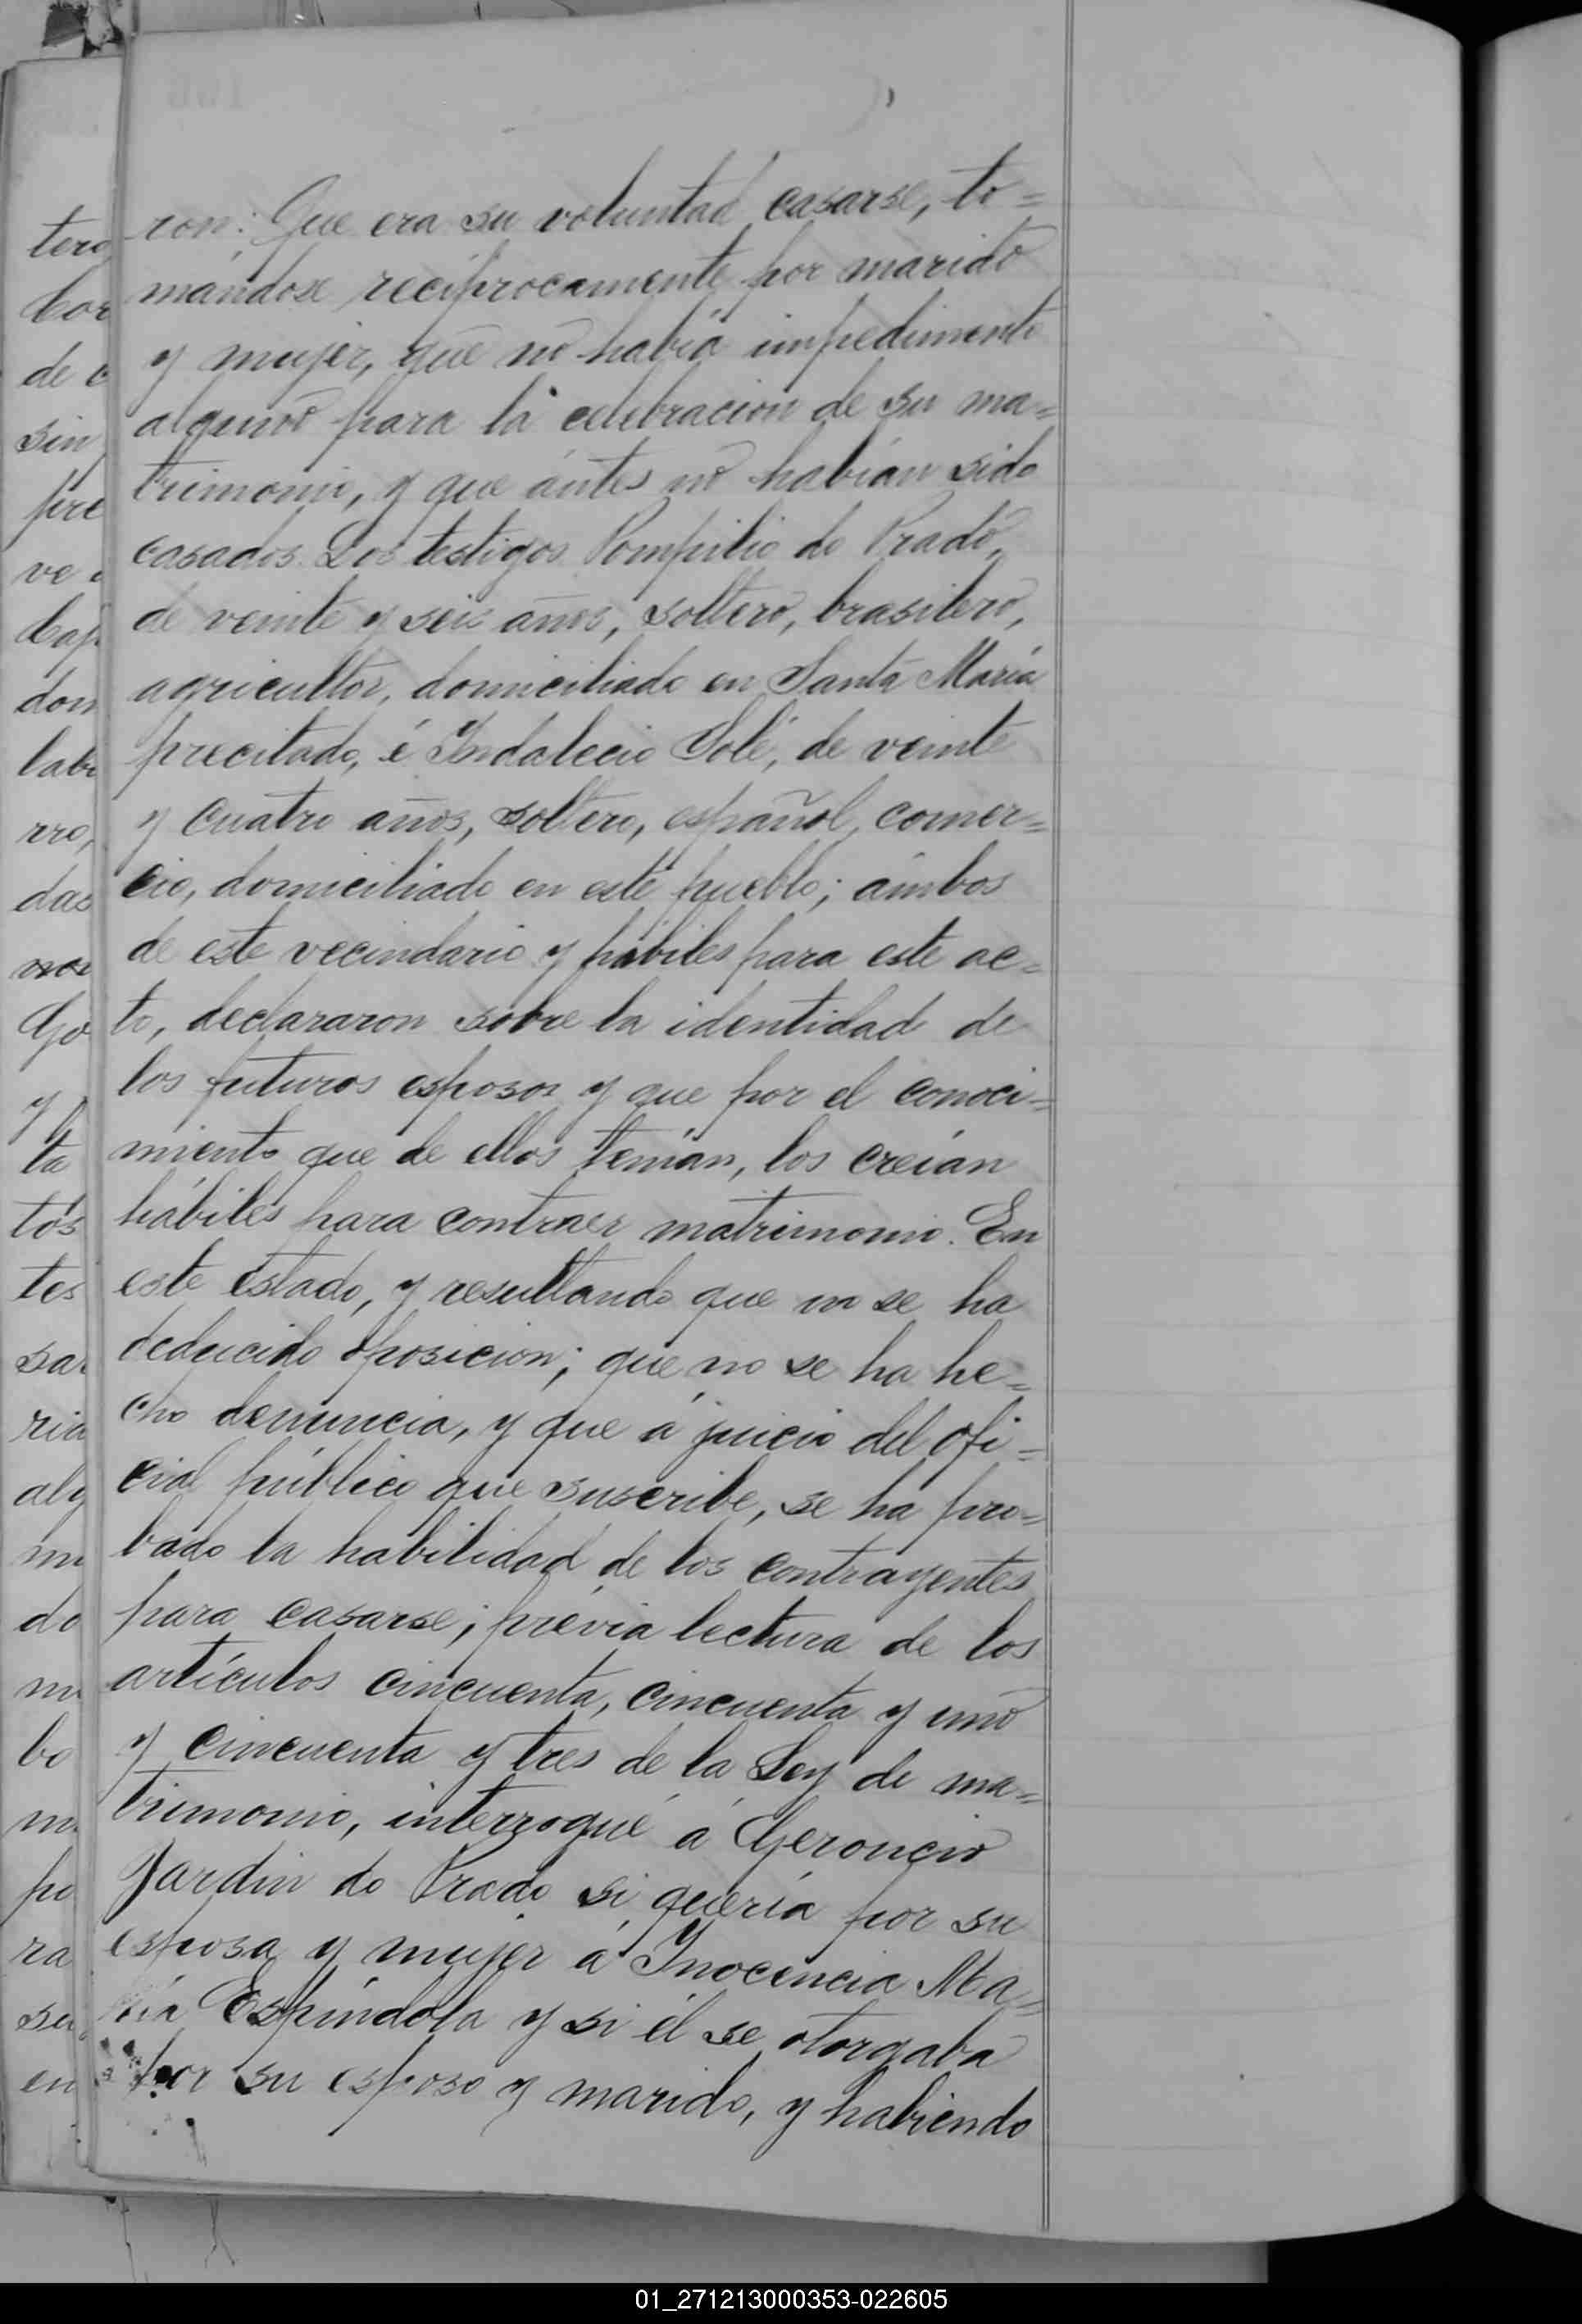 ron: Que era su voluntad casarse, to=
mándose recíprocamente por marido
y mujer, que no había impedimento
alguno para la celebracion de su ma=
trimonio, y que ántes no habían sido
casados. Los testigos Pompilio do Prado,
de veinte y seis años, soltero, brasilero,
agricultor, domiciliado en Santa María
precitado, é Indalecio Solé, de veinte
y cuatro años, soltero, español, comer=
cio, domiciliado en este pueblo; ámbos
de este vecindario y hábiles para este ac=
to, declararon sobre la identidad de
los futuros esposos y que por el conoci=
miento que de ellos tenían, los creían
hábiles para contraer matrimonio. En
este estado, y resultando que no se ha
deducido oposicion; que no se ha he=
cho denuncia, y que á juicio del ofi=
cial público que suscribe, se ha pro=
bado la habilidad de los contrayentes
para casarse; prévia lectura de los
artículos cincuenta, cincuenta y uno
y cincuenta y tres de la Ley de ma=
trimonio, interrogué á Geroncio
Jardin do Prado si quería por su
esposa y mujer á Inocencia Ma=
ría Espíndola y si él se otorgaba
por su esposo y marido, y habiendo
tero
de
sin
pre
ve
don
lab
rro,
das
Go
y
ta
tos
tes
sa
ria
alg
do
bo
po
ra
su
en
01_271213000353-022605